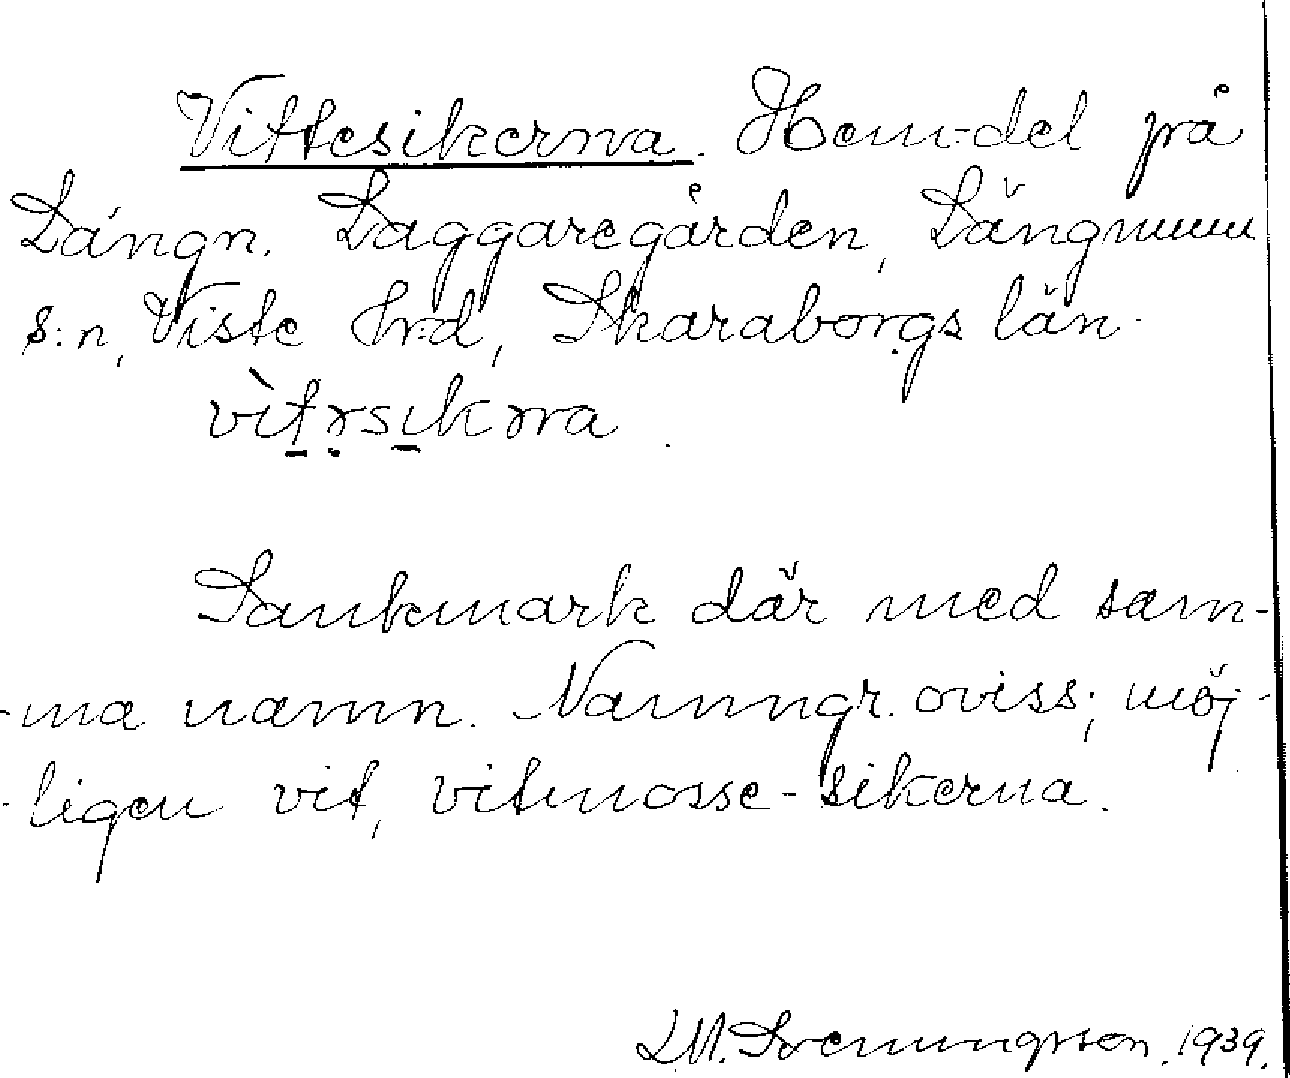 Vittesikerna. Hem-del på
Längn. Baggaregården, Längnum
s:n, Viste hrd, Skaraborgs län.
Sankmark där med sam-
-ma namn. Namngr. oviss; möj-
-ligen vit, vitmosse-sikerna.
Svenungsson. 1939.